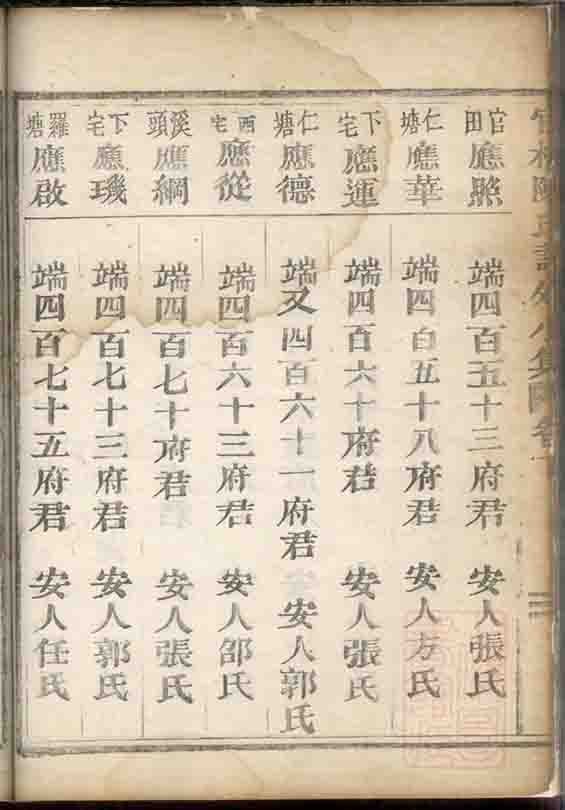 官田 應照 端四百五十三府君 安人張氏
仁塘 應華 端四百五十八府君 安人方氏
下宅 應運 端四百六十府君 安人張氏
仁塘 應德 端又四百六十一府君 安人郭氏
西宅 應從 端四百六十三府君 安人邵氏
溪頭 應綱 端四百七十府君 安人張氏
下宅 應璣 端四百七十三府君 安人郭氏
羅塘 應啟 端四百七十五府君 安人任氏